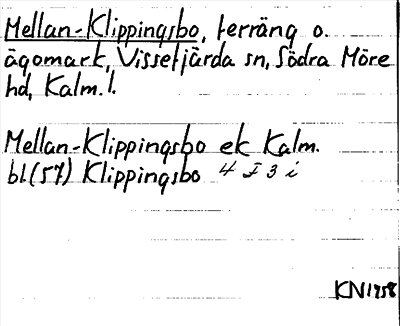 Mellan-Klippingsbo, terräng o.
ägomark, Vissefjärda sn, Södra Möre
hd, Kalm. l.
Mellan-Klippingsbo ek Kalm.
bl (57) Klippingsbo 4 I 3 i
KN1958